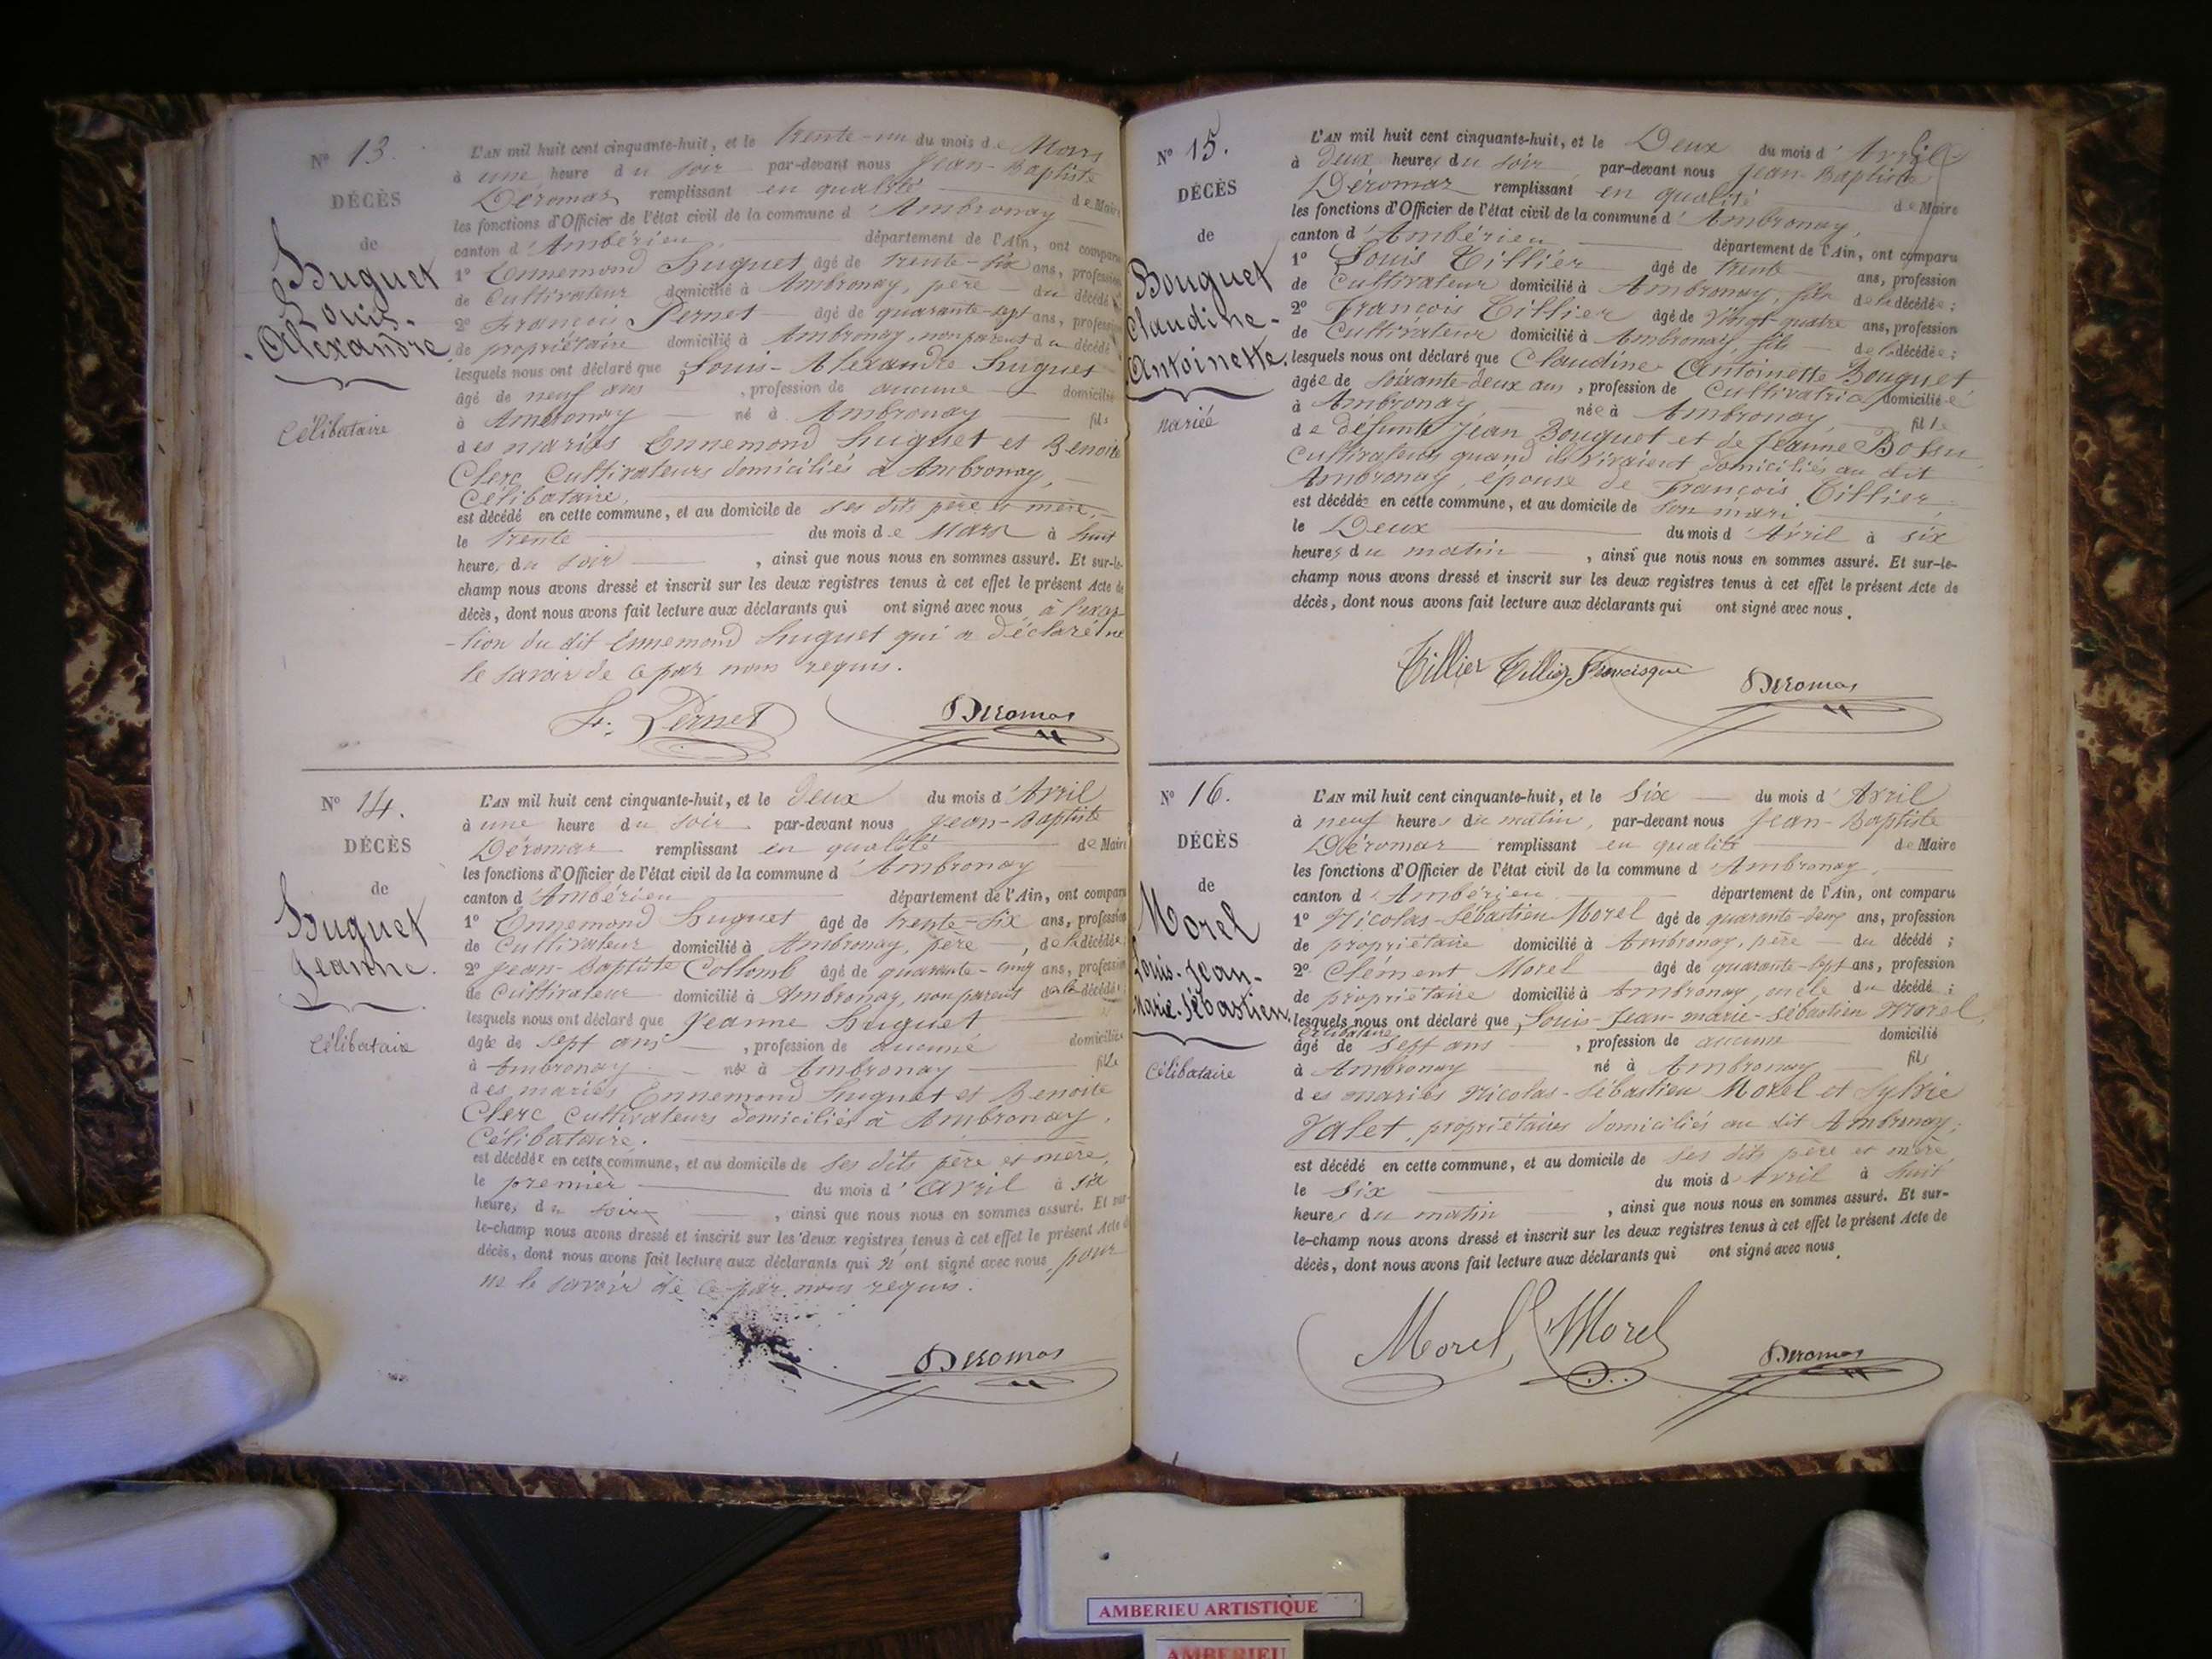 N° 13.
DÉCÈS
de
Huguet
Louis-
Alexandre
célibataire
L'AN mil huit cent cinquante-huit, et le trente-un du mois de Mars
à une heure du soir par-devant nous Jean-Baptiste
Déromas remplissant en qualité de Maire
les fonctions d'Officier de l'état civil de la commune d'Ambronay
canton d'Ambérieu département de l'Ain, ont comparu
1° Ennemond Huguet âgé de trente-six ans, profession
de Cultivateur domicilié à Ambronay, père du décédé
2° François Pernet âgé de quarante-sept ans, profession
de propriétaire domicilié à Ambronay, non parent du décédé
lesquels nous ont déclaré que Louis-Alexandre Huguet
âgé de neuf ans, profession de aucune domicilié
à Ambronay né à Ambronay fils
des mariés Ennemond Huguet et Benoite
Clerc Cultivateurs domiciliés à Ambronay,
Célibataire,
est décédé en cette commune, et au domicile de ses dits père et mère,
le trente du mois de Mars à huit
heures du soir, ainsi que nous nous en sommes assuré. Et sur-le-
champ nous avons dressé et inscrit sur les deux registres tenus à cet effet le présent Acte de
décès, dont nous avons fait lecture aux déclarants qui ont signé avec nous à l'excep
-tion du dit Ennemond Huguet qui a déclaré ne
le savoir de ce par nous requis.
F. Pernet Deromas
N° 14.
DÉCÈS
de
Huguet
Jeanne.
célibataire
L'AN mil huit cent cinquante-huit, et le deux du mois d'Avril
à une heure du soir par-devant nous Jean-Baptiste
Déromas remplissant en qualité de Maire
les fonctions d'Officier de l'état civil de la commune d'Ambronay
canton d'Ambérieu département de l'Ain, ont comparu
1° Ennemond Huguet âgé de trente-six ans, profession
de Cultivateur domicilié à Ambronay, père, de la décédée;
2° Jean-Baptiste Collomb âgé de quarante-cinq ans, profession
de Cultivateur domicilié à Ambronay, non parent de la décédée;
lesquels nous ont déclaré que Jeanne Huguet
âgée de sept ans, profession de aucune domiciliée
à Ambronay née à Ambronay fille
des mariés Ennemond Huguet et Benoite
Clerc Cultivateurs domiciliés à Ambronay,
Célibataire.
est décédée en cette commune, et au domicile de ses dits père et mère,
le premier du mois d'avril à six
heures du soir, ainsi que nous nous en sommes assuré. Et sur-
le-champ nous avons dressé et inscrit sur les deux registres tenus à cet effet le présent Acte de
décès, dont nous avons fait lecture aux déclarants qui n'ont signé avec nous, pour
ne le savoir de ce par nous requis.
Deromas
N° 15.
DÉCÈS
de
Bouquet
Claudine-
Antoinette.
mariée
L'AN mil huit cent cinquante-huit, et le Deux du mois d'Avril
à deux heures du soir par-devant nous Jean-Baptiste
Déromas remplissant en qualité de Maire
les fonctions d'Officier de l'état civil de la commune d'Ambronay,
canton d'Ambérieu département de l'Ain, ont comparu
1° Louis Tillier âgé de trente ans, profession
de Cultivateur domicilié à Ambronay, fils de la décédée;
2° François Tillier âgé de vingt-quatre ans, profession
de Cultivateur domicilié à Ambronay fils de la décédée;
lesquels nous ont déclaré que Claudine Antoinette Bouquet
âgée de soixante-deux ans, profession de Cultivatrice domiciliée
à Ambronay née à Ambronay, fille
de défunts Jean Bouquet et de Jeanne Bossu
Cultivateurs quand ils vivaient domiciliés au dit
Ambronay, épouse de François Tillier,
est décédée en cette commune, et au domicile de son mari
le Deux du mois d'Avril à six
heures du matin, ainsi que nous nous en sommes assuré. Et sur-le-
champ nous avons dressé et inscrit sur les deux registres tenus à cet effet le présent Acte de
décès, dont nous avons fait lecture aux déclarants qui ont signé avec nous.
Tillier Tillier Francisque Deromas
N° 16.
DÉCÈS
de
Morel
Louis-Jean-
Marie-Sébastien
célibataire
L'AN mil huit cent cinquante-huit, et le Six du mois d'Avril
à neuf heures du matin, par-devant nous Jean-Baptiste
Déromas remplissant en qualité de Maire
les fonctions d'Officier de l'état civil de la commune d'Ambronay,
canton d'Ambérieu département de l'Ain, ont comparu
1° Nicolas-Sébastien Morel âgé de quarante-deux ans, profession
de propriétaire domicilié à Ambronay, père du décédé;
2° Clément Morel âgé de quarante-sept ans, profession
de propriétaire domicilié à Ambronay, oncle du décédé;
lesquels nous ont déclaré que Louis-Jean-marie-Sébastien Morel,
célibataire
âgé de Sept ans, profession de aucune domicilié
à Ambronay né à Ambronay fils
des mariés Nicolas-Sébastien Morel et Sylvie
Jalet, propriétaires domiciliés au dit Ambronay;
est décédé en cette commune, et au domicile de ses dits père et mère,
le Six du mois d'Avril à huit
heures du matin, ainsi que nous nous en sommes assuré. Et sur-
le-champ nous avons dressé et inscrit sur les deux registres tenus à cet effet le présent Acte de
décès, dont nous avons fait lecture aux déclarants qui ont signé avec nous.
Morel Morel Deromas
AMBERIEU ARTISTIQUE
AMBERIEU